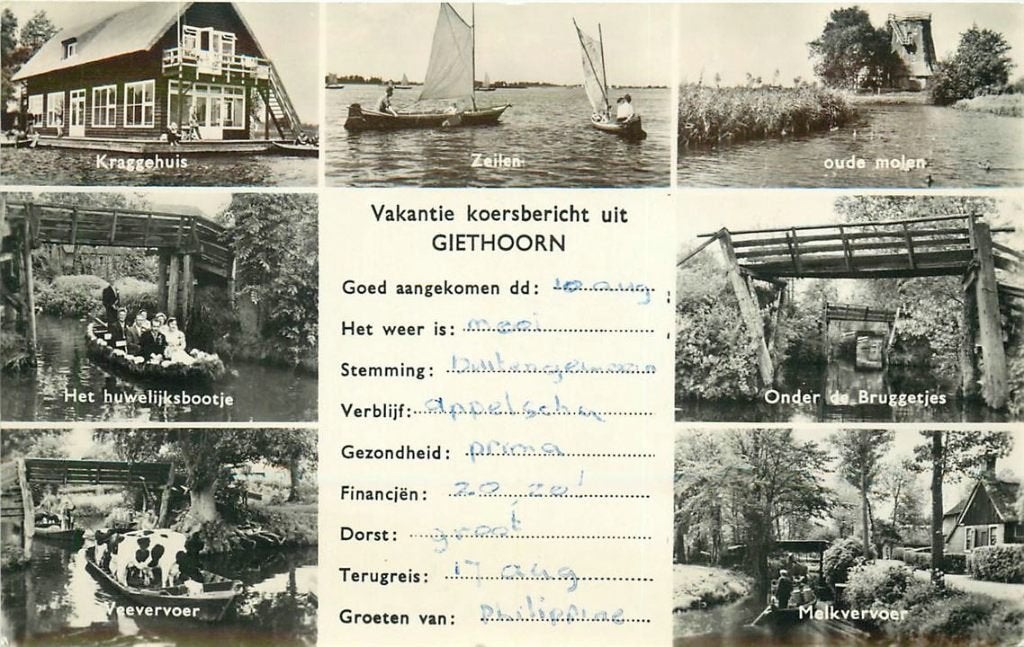 Kraggehuis
Zeilen
oude molen
Vakantie koersbericht uit
GIETHOORN
Goed aangekomen dd: 10 aug
Het weer is: mooi
Stemming: Buitengewoon
Verblijf: appelscha
Gezondheid: prima
Financjën: zo, zo!
Dorst: groot
Terugreis: 17 aug
Groeten van: Philippine
Het huwelijksbootje
Onder de Bruggetjes
Veevervoer
Melkvervoer